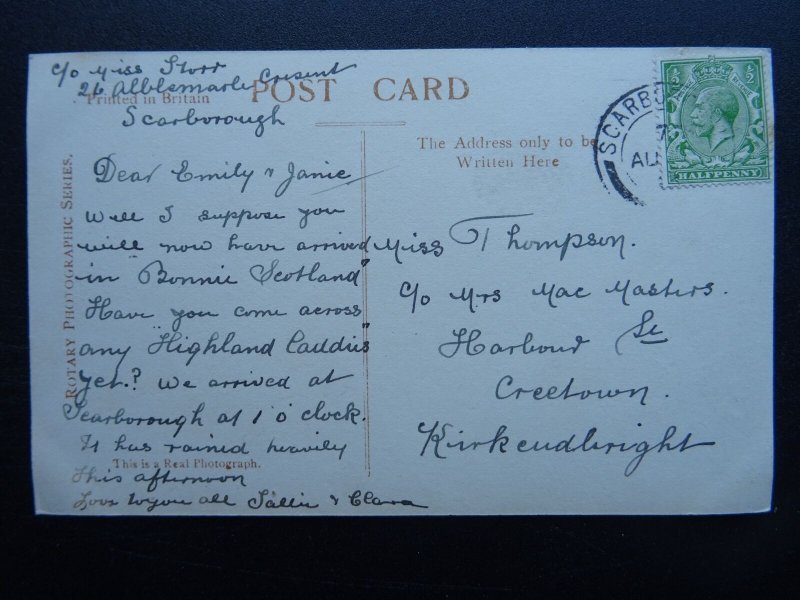 c/o Miss Storr
26 Alblemarle Cresent
Scarborough
Printed in Britain
POST CARD
The Address only to be
Written Here
ROTARY PHOTOGRAPHIC SERIES.
Dear Emily & Janie
Well I suppose you
will now have arrived
in "Bonnie Scotland"
Have you come across
any "Highland Laddies"
yet.? We arrived at
Scarborough at 1 o'clock.
It has rained heavily
This is a Real Photograph.
this afternoon
Love to you all Sallie & Clara
Miss Thompson.
c/o Mrs Mac Masters.
Harbour St
Creetown.
Kirkcudbright
SCARBO
AU
½ ½
HALFPENNY